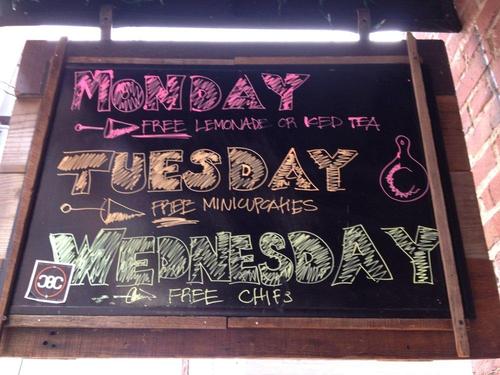 MONDAY
FREE LEMONADE OR ICED TEA
TUESDAY
FREE MINICUPCAKES
WEDNESDAY
FREE CHIPS
C
CBC